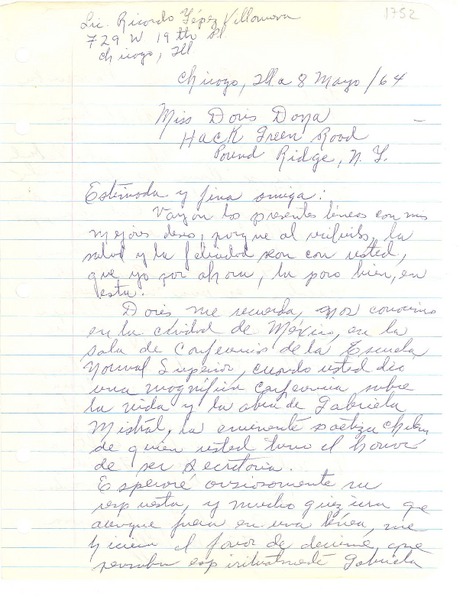 1752
Lic. Ricardo Yépez Villanueva
729 W 19 th Pl
Chicago, Ill
Chicago, Ill a 8 Mayo/64
Miss Doris Dana
Hack Green Road
Pound Ridge, N. Y.
Estimada y fina amiga:
Vayan las presentes líneas con mis
mejores deseos, porque al recibirlas, la
salud y la felicidad son con usted,
que yo por ahora, la paso bien, en
ésta.
Doris me recuerda, nos conocimos
en la ciudad de México, en la
sala de Conferencias de la Escuela
Normal Superior, cuando usted dió
una magnífica conferencia sobre
la vida y la obra de Gabriela
Mistral, la eminente poetiza chilena
de quien usted tuvo el honor
de ser secretaria.
Esperaré ansiosamente su
respuesta, y mucho quisiera que
aunque fuera en una línea, me
hiciera el favor de decirme, que
pensaba espiritualmente Gabriela